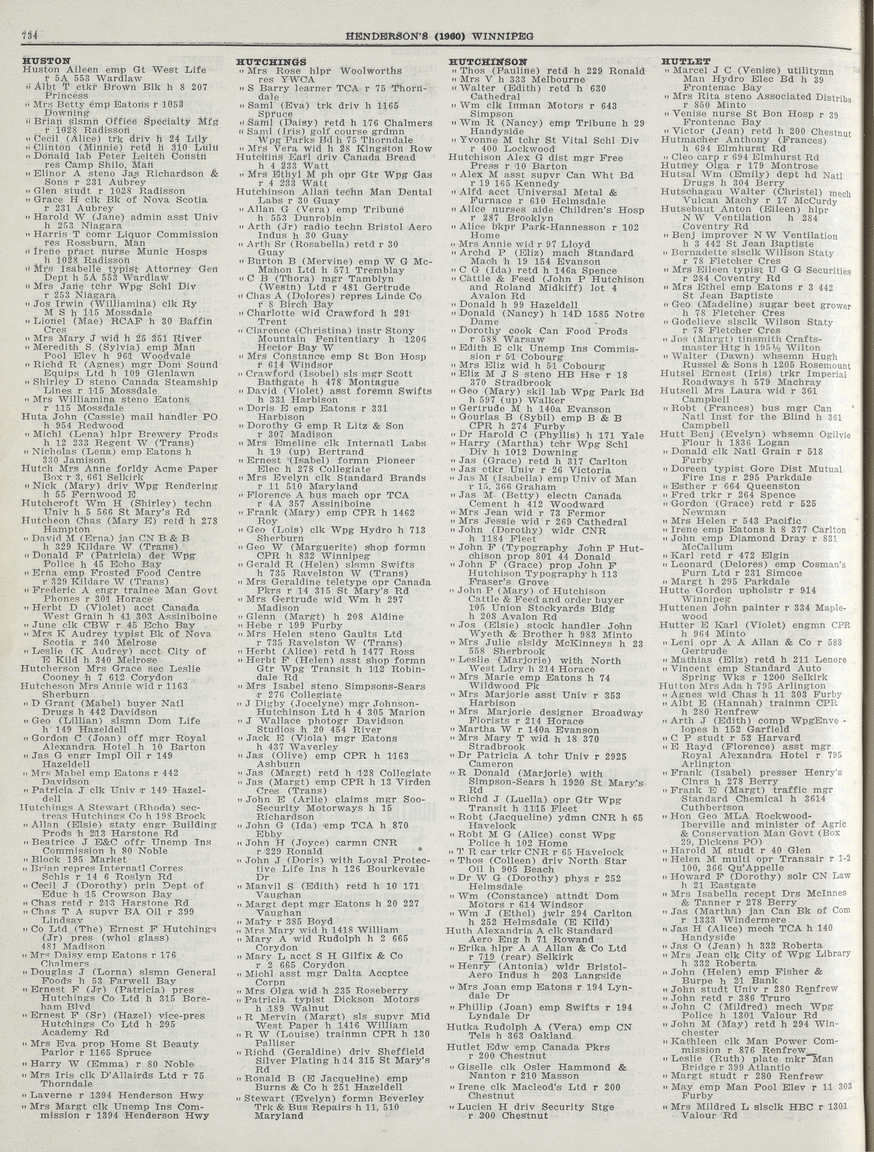 734
HENDERSON'S (1960) WINNIPEG
HUSTON
Huston Aileen emp Gt West Life
r 5A 553 Wardlaw
" Albt T ctkr Brown Blk h 8 207
Princess
" Mrs Betty emp Eatons r 1053
Downing
" Brian slsmn Office Specialty Mfg
r 1028 Radisson
" Cecil (Alice) trk driv h 24 Lily
" Clinton (Minnie) retd h 310 Lulu
" Donald lab Peter Leitch Constn
res Camp Shilo, Man
" Elinor A steno Jas Richardson &
Sons r 231 Aubrey
" Glen studt r 1028 Radisson
" Grace H clk Bk of Nova Scotia
r 231 Aubrey
" Harold W (Jane) admin asst Univ
h 253 Niagara
" Harris T comr Liquor Commission
res Rossburn, Man
" Irene pract nurse Munic Hosps
h 1028 Radisson
" Mrs Isabelle typist Attorney Gen
Dept h 5A 553 Wardlaw
" Mrs Jane tchr Wpg Schl Div
r 253 Niagara
" Jos Irwin (Williamina) clk Ry
M S h 115 Mossdale
" Lionel (Mae) RCAF h 30 Baffin
Cres
" Mrs Mary J wid h 25 351 River
" Meredith S (Sylvia) emp Man
Pool Elev h 961 Woodvale
" Richd R (Agnes) mgr Dom Sound
Equips Ltd h 109 Glenlawn
" Shirley D steno Canada Steamship
Lines r 115 Mossdale
" Mrs Williamina steno Eatons
r 115 Mossdale
Huta John (Cassie) mail handler PO
h 954 Redwood
" Michl (Lena) hlpr Brewery Prods
h 12 233 Regent W (Trans)
" Nicholas (Lena) emp Eatons h
330 Jamison
Hutch Mrs Anne forldy Acme Paper
Box r 3, 661 Selkirk
" Nick (Mary) driv Wpg Rendering
h 55 Fernwood E
Hutchcroft Wm H (Shirley) techn
Univ h 5 566 St Mary's Rd
Hutcheon Chas (Mary E) retd h 278
Hampton
" David M (Erna) jan CN B & B
h 329 Kildare W (Trans)
" Donald F (Patricia) det Wpg
Police h 45 Echo Bay
" Erna emp Frosted Food Centre
r 329 Kildare W (Trans)
" Frederic A engr trainee Man Govt
Phones r 301 Horace
" Herbt D (Violet) acct Canada
West Grain h 41 303 Assiniboine
" June clk CBW r 45 Echo Bay
" Mrs K Audrey typist Bk of Nova
Scotia r 340 Melrose
" Leslie (K Audrey) acct City of
E Kild h 340 Melrose
Hutcherson Mrs Grace sec Leslie
Cooney h 7 612 Corydon
Hutcheson Mrs Annie wid r 1163
Sherburn
" D Grant (Mabel) buyer Natl
Drugs h 442 Davidson
" Geo (Lillian) slsmn Dom Life
h 149 Hazeldell
" Gordon C (Joan) off mgr Royal
Alexandra Hotel h 10 Barton
" Jas G engr Impl Oil r 149
Hazeldell
" Mrs Mabel emp Eatons r 442
Davidson
" Patricia J clk Univ r 149 Hazel-
dell
Hutchings A Stewart (Rhoda) sec-
treas Hutchings Co h 198 Brock
" Allan (Elsie) staty engr Building
Prods h 213 Harstone Rd
" Beatrice J E&C offr Unemp Ins
Commission h 80 Noble
" Block 195 Market
" Brian repres Internatl Corres
Schls r 14 6 Roslyn Rd
" Cecil J (Dorothy) prin Dept of
Educ h 15 Crowson Bay
" Chas retd r 213 Harstone Rd
" Chas T A supvr BA Oil r 399
Lindsay
" Co Ltd (The) Ernest F Hutchings
(Jr) pres (whol glass)
481 Madison
" Mrs Daisy emp Eatons r 176
Chalmers
" Douglas J (Lorna) slsmn General
Foods h 53 Farwell Bay
" Ernest F (Jr) (Patricia) pres
Hutchings Co Ltd h 315 Bore-
ham Blvd
" Ernest F (Sr) (Hazel) vice-pres
Hutchings Co Ltd h 295
Academy Rd
" Mrs Eva prop Home St Beauty
Parlor r 1165 Spruce
" Harry W (Emma) r 80 Noble
" Mrs Iris clk D'Allairds Ltd r 75
Thorndale
" Laverne r 1394 Henderson Hwy
" Mrs Margt clk Unemp Ins Com-
mission r 1394 Henderson Hwy
HUTCHINGS
" Mrs Rose hlpr Woolworths
res YWCA
" S Barry learner TCA r 75 Thorn-
dale
" Saml (Eva) trk driv h 1165
Spruce
" Saml (Daisy) retd h 176 Chalmers
" Saml (Iris) golf course grdmn
Wpg Parks Bd h 75 Thorndale
" Mrs Vera wid h 28 Kingston Row
Hutchins Earl driv Canada Bread
h 4 233 Watt
" Mrs Ethyl M ph opr Gtr Wpg Gas
r 4 233 Watt
Hutchinson Allan techn Man Dental
Labs r 30 Guay
" Allan G (Vera) emp Tribune
h 553 Dunrobin
" Arth (Jr) radio techn Bristol Aero
Indus h 30 Guay
" Arth Sr (Rosabella) retd r 30
Guay
" Burton B (Mervine) emp W G Mc-
Mahon Ltd h 571 Tremblay
" C B (Thora) mgr Tamblyn
(Westn) Ltd r 481 Gertrude
" Chas A (Dolores) repres Linde Co
r 8 Birch Bay
" Charlotte wid Crawford h 291
Trent
" Clarence (Christina) instr Stony
Mountain Penitentiary h 1206
Hector Bay W
" Mrs Constance emp St Bon Hosp
r 614 Windsor
" Crawford (Isobel) sls mgr Scott
Bathgate h 478 Montague
" David (Violet) asst foremn Swifts
h 331 Harbison
" Doris E emp Eatons r 331
Harbison
" Dorothy G emp R Litz & Son
r 307 Madison
" Mrs Emeline clk Internatl Labs
h 19 (up) Bertrand
" Ernest (Isabel) formn Pioneer
Elec h 278 Collegiate
" Mrs Evelyn clk Standard Brands
r 11 510 Maryland
" Florence A bus mach opr TCA
r 4A 357 Assiniboine
" Frank (Mary) emp CPR h 1462
Roy
" Geo (Lois) clk Wpg Hydro h 713
Sherburn
" Geo W (Marguerite) shop formn
CPR h 832 Winnipeg
" Gerald R (Helen) slsmn Swifts
h 735 Ravelston W (Trans)
" Mrs Geraldine teletype opr Canada
Pkrs r 14 315 St Mary's Rd
" Mrs Gertrude wid Wm h 297
Madison
" Glenn (Margt) h 208 Aldine
" Hebe r 199 Furby
" Mrs Helen steno Gaults Ltd
r 735 Ravelston W (Trans)
" Herbt (Alice) retd h 1477 Ross
" Herbt F (Helen) asst shop formn
Gtr Wpg Transit h 112 Robin-
dale Rd
" Mrs Isabel steno Simpsons-Sears
r 276 Collegiate
" J Digby (Jocelyne) mgr Johnson-
Hutchinson Ltd h 4 305 Marion
" J Wallace photogr Davidson
Studios h 20 454 River
" Jack E (Viola) mgr Eatons
h 437 Waverley
" Jas (Olive) emp CPR h 1163
Ashburn
" Jas (Margt) retd h 128 Collegiate
" Jas (Margt) emp CPR h 13 Virden
Cres (Trans)
" John E (Arlie) claims mgr Soo-
Security Motorways h 15
Richardson
" John G (Ida) emp TCA h 870
Ebby
" John H (Joyce) carmn CNR
r 229 Ronald
" John J (Doris) with Loyal Protec-
tive Life Ins h 126 Bourkevale
Dr
" Manvil S (Edith) retd h 10 171
Vaughan
" Margt dept mgr Eatons h 20 227
Vaughan
" Mary r 385 Boyd
" Mrs Mary wid h 1418 William
" Mary A wid Rudolph h 2 665
Corydon
" Mary L acct S H Gilfix & Co
r 2 665 Corydon
" Michl asst mgr Dalta Accptce
Corpn
" Mrs Olga wid h 235 Roseberry
" Patricia typist Dickson Motors
h 189 Walnut
" R Mervin (Margt) sls supvr Mid
West Paper h 1416 William
" R W (Louise) trainmn CPR h 130
Palliser
" Richd (Geraldine) driv Sheffield
Silver Plating h 14 315 St Mary's
Rd
" Ronald B (E Jacqueline) emp
Burns & Co h 251 Hazeldell
" Stewart (Evelyn) formn Beverley
Trk & Bus Repairs h 11, 510
Maryland
HUTCHINSON
" Thos (Pauline) retd h 229 Ronald
" Mrs V h 333 Melbourne
" Walter (Edith) retd h 630
Cathedral
" Wm clk Inman Motors r 643
Simpson
" Wm R (Nancy) emp Tribune h 29
Handyside
" Yvonne M tchr St Vital Schl Div
r 400 Lockwood
Hutchison Alex G dist mgr Free
Press r 10 Barton
" Alex M asst supvr Can Wht Bd
r 19 165 Kennedy
" Alfd acct Universal Metal &
Furnace r 610 Helmsdale
" Alice nurses aide Children's Hosp
r 287 Brooklyn
" Alice bkpr Park-Hannesson r 102
Home
" Mrs Annie wid r 97 Lloyd
" Archd P (Eliz) mach Standard
Mach h 19 154 Evanson
" C G (Ida) retd h 146a Spence
" Cattle & Feed (John P Hutchison
and Roland Midkiff) lot 4
Avalon Rd
" Donald h 99 Hazeldell
" Donald (Nancy) h 14D 1585 Notre
Dame
" Dorothy cook Can Food Prods
r 588 Warsaw
" Edith E clk Unemp Ins Commis-
sion r 51 Cobourg
" Mrs Eliz wid h 51 Cobourg
" Eliz M J S steno HB Hse r 18
370 Stradbrook
" Geo (Mary) skil lab Wpg Park Bd
h 597 (up) Walker
" Gertrude M h 140a Evanson
" Gourlas B (Sybil) emp B & B
CPR h 274 Furby
" Dr Harold C (Phyllis) h 171 Yale
" Harry (Martha) tchr Wpg Schl
Div h 1012 Downing
" Jas (Grace) retd h 317 Carlton
" Jas ctkr Univ r 26 Victoria
" Jas M (Isabella) emp Univ of Man
r 15, 366 Graham
" Jas M (Betty) electn Canada
Cement h 412 Woodward
" Mrs Jean wid r 73 Fermor
" Mrs Jessie wid r 269 Cathedral
" John (Dorothy) wldr CNR
h 1184 Fleet
" John F (Typography John F Hut-
chison prop 801 44 Donald
" John F (Grace) prop John F
Hutchison Typography h 113
Fraser's Grove
" John P (Mary) of Hutchison
Cattle & Feed and order buyer
105 Union Stockyards Bldg
h 208 Avalon Rd
" Jos (Elsie) stock handler John
Wyeth & Brother h 983 Minto
" Mrs Julie slsldy McKinneys h 23
558 Sherbrook
" Leslie (Marjorie) with North
West Ldry h 214 Horace
" Mrs Marie emp Eatons h 74
Wildwood Pk
" Mrs Marjorie asst Univ r 353
Harbison
" Mrs Marjorie designer Broadway
Florists r 214 Horace
" Martha W r 140a Evanson
" Mrs Mary T wid h 18 370
Stradbrook
" Dr Patricia A tchr Univ r 2925
Cameron
" R Donald (Marjorie) with
Simpson-Sears h 1920 St Mary's
Rd
" Richd J (Luella) opr Gtr Wpg
Transit h 1115 Fleet
" Robt (Jacqueline) ydmn CNR h 65
Havelock
" Robt M G (Alice) const Wpg
Police h 102 Home
" T R car trkr CNR r 65 Havelock
" Thos (Colleen) driv North Star
Oil h 905 Beach
" Dr W G (Dorothy) phys r 252
Helmsdale
" Wm (Constance) attndt Dom
Motors r 614 Windsor
" Wm J (Ethel) jwlr 294 Carlton
h 252 Helmsdale (E Kild)
Huth Alexandria A clk Standard
Aero Eng h 71 Rowand
" Erika hlpr A A Allan & Co Ltd
r 719 (rear) Selkirk
" Henry (Antonia) wldr Bristol-
Aero Indus h 203 Langside
" Mrs Joan emp Eatons r 194 Lyn-
dale Dr
" Phillip (Joan) emp Swifts r 194
Lyndale Dr
Hutka Rudolph A (Vera) emp CN
Tels h 363 Oakland
Hutlet Edw emp Canada Pkrs
r 200 Chestnut
" Giselle clk Osler Hammond &
Nanton r 210 Masson
" Irene clk Macleod's Ltd r 200
Chestnut
" Lucien H driv Security Stge
r 200 Chestnut
HUTLET
" Marcel J C (Venise) utilitymn
Man Hydro Elec Bd h 39
Frontenac Bay
" Mrs Rita steno Associated Distribs
r 850 Minto
" Venise nurse St Bon Hosp r 39
Frontenac Bay
" Victor (Jean) retd h 200 Chestnut
Hutmacher Anthony (Frances)
h 694 Elmhurst Rd
" Cleo carp r 694 Elmhurst Rd
Hutney Olga r 179 Montrose
Hutsal Wm (Emily) dept hd Natl
Drugs h 304 Berry
Hutschagan Walter (Christel) mech
Vulcan Machy r 17 McCurdy
Hutsebaut Anton (Eileen) hlpr
N W Ventilation h 284
Coventry Rd
" Benj improver N W Ventilation
h 3 442 St Jean Baptiste
" Bernadette slsclk Willson Staty
r 78 Fletcher Cres
" Mrs Eileen typist U G G Securities
r 284 Coventry Rd
" Mrs Ethel emp Eatons r 3 442
St Jean Baptiste
" Geo (Madeline) sugar beet grower
h 78 Fletcher Cres
" Godelieve slsclk Wilson Staty
r 78 Fletcher Cres
" Jos (Margt) tinsmith Crafts-
master Htg h 195½ Wilton
" Walter (Dawn) whsemn Hugh
Russel & Sons h 1205 Rosemount
Hutsel Ernest (Iris) trkr Imperial
Roadways h 579 Machray
Hutsell Mrs Laura wid r 361
Campbell
" Robt (Frances) bus mgr Can
Natl Inst for the Blind h 361
Campbell
Hutt Benj (Evelyn) whsemn Ogilvie
Flour h 1836 Logan
" Donald clk Natl Grain r 518
Furby
" Doreen typist Gore Dist Mutual
Fire Ins r 295 Parkdale
" Esther r 664 Queenston
" Fred trkr r 264 Spence
" Gordon (Grace) retd r 525
Newman
" Mrs Helen r 543 Pacific
" Irene emp Eatons h 8 377 Carlton
" John emp Diamond Dray r 831
McCallum
" Karl retd r 472 Elgin
" Leonard (Delores) emp Cosman's
Furn Ltd r 231 Simcoe
" Margt h 295 Parkdale
Hutte Gordon upholstr r 914
Winnipeg
Huttenen John painter r 334 Maple-
wood
Hutter E Karl (Violet) engmn CPR
h 964 Minto
" Leni opr A A Allan & Co r 588
Gertrude
" Mathias (Eliz) retd h 211 Lenore
" Vincent emp Standard Auto
Spring Wks r 1200 Selkirk
Hutton Mrs Ada h 795 Arlington
" Agnes wid Chas h 11 303 Furby
" Albt E (Hannah) trainmn CPR
h 280 Renfrew
" Arth J (Edith) comp WpgEnve-
lopes h 152 Garfield
" C P studt r 58 Harvard
" E Rayd (Florence) asst mgr
Royal Alexandra Hotel r 795
Arlington
" Frank (Isabel) presser Henry's
Clnrs h 278 Berry
" Frank E (Margt) traffic mgr
Standard Chemical h 3614
Cuthbertson
" Hon Geo MLA Rockwood-
Iberville and minister of Agric
& Conservation Man Govt (Box
29, Dickens PO)
" Harold M studt r 40 Glen
" Helen M multi opr Transair r 1-2
100, 366 Qu'Appelle
" Howard F (Dorothy) solr CN Law
h 21 Eastgate
" Mrs Isabella recept Drs McInnes
& Tanner r 278 Berry
" Jas (Martha) jan Can Bk of Com
r 1333 Windermere
" Jas H (Alice) mech TCA h 140
Handyside
" Jas O (Jean) h 332 Roberta
" Mrs Jean clk City of Wpg Library
h 332 Roberta
" John (Helen) emp Fisher &
Burpe h 21 Bank
" John studt Univ r 280 Renfrew
" John retd r 386 Truro
" John C (Mildred) mech Wpg
Police h 1301 Valour Rd
" John M (May) retd h 294 Win-
chester
" Kathleen clk Man Power Com-
mission r 876 Renfrew
" Leslie (Ruth) plate mkr Man
Bridge r 399 Atlantic
" Margt studt r 280 Renfrew
" May emp Man Pool Elev r 11 303
Furby
" Mrs Mildred L slsclk HBC r 1301
Valour Rd